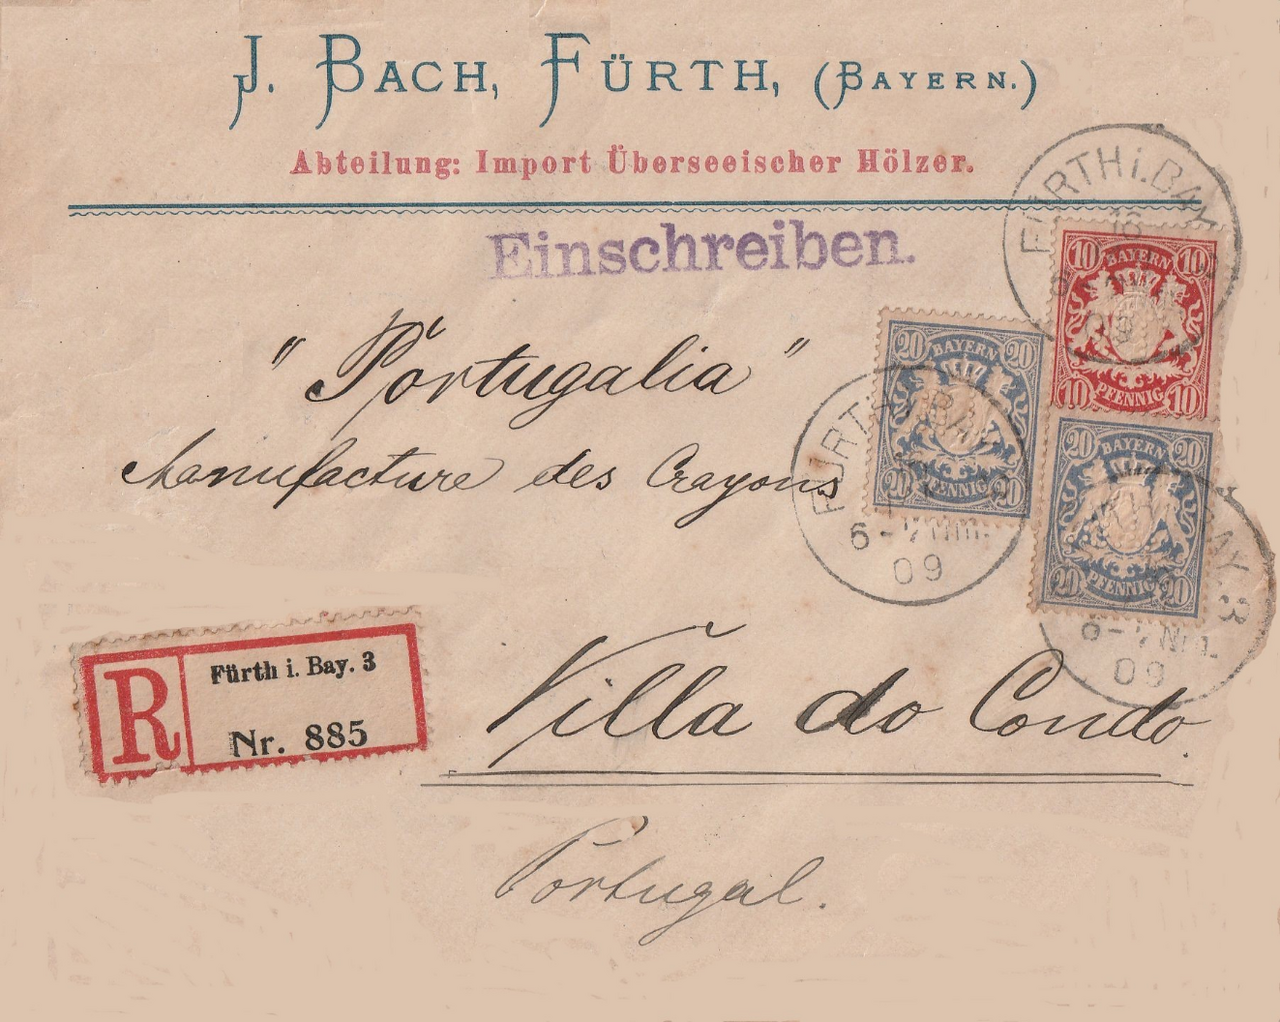 J. BACH, FÜRTH, (BAYERN.)
Abteilung: Import Überseeischer Hölzer.
Einschreiben.
FÜRTH i. BAY
16
09
10 BAYERN 10
10 PFENNIG 10
"Portugalia"
20 BAYERN 20
20 PFENNIG 20
Manufacture des Crayons
FÜRTH i. BAY
6-7 Nm.
09
20 BAYERN 20
20 PFENNIG 20
BAY. 3
6-7 Nm.
09
R
Fürth i. Bay. 3
Nr. 885
Villa do Condo.
Portugal.